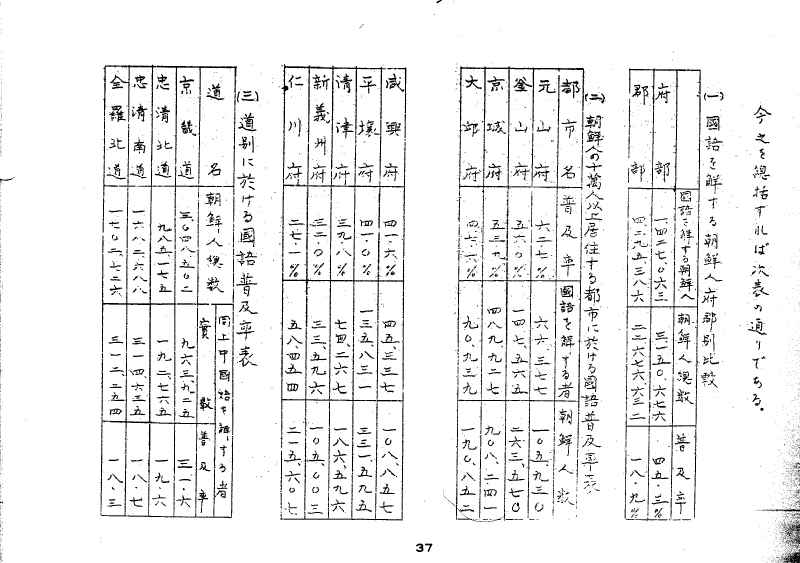 今之を總括すれば次表の通りである。
(一) 國語を解する朝鮮人府郡別比較
國語を解する朝鮮人 朝鮮人總數 普及率
府部 一、四二七、〇六三 三、一五〇、六七六 四五・三%
郡部 四、二九五、三八六 二二、六七六、六三二 一八・九%
(二) 朝鮮人の十萬人以上居住する都市に於ける國語普及率表
都市名 普及率 國語を解する者 朝鮮人數
元山府 六二・七% 六六、三七七 一〇五、九三〇
釜山府 五六・〇% 一四七、五六五 二六三、五七〇
京城府 五三・九% 四八九、九二七 九〇八、二四一
大邱府 四七・六% 九〇、九三九 一九〇、八五二
咸興府 四一・六% 四五、三三七 一〇八、八五七
平壤府 四一・〇% 一三五、八三一 三三一、五九五
清津府 三九・八% 七四、二六七 一八六、五九六
新義州府 三二・〇% 三三、五九六 一〇五、〇〇三
仁川府 二七・一% 五八、四五四 二一五、六〇七
(三) 道別に於ける國語普及率表
道名 朝鮮人總數 同上中國語を解する者
實數 普及率
京畿道 三〇四八、五〇二 九六三、九二五 三一・六
忠清北道 九八五、一七五 一九二、七六五 一九・六
忠清南道 一六八二、六八八 三一四、六三五 一八・七
全羅北道 一七〇二、七二六 三一二、二五四 一八・三
37